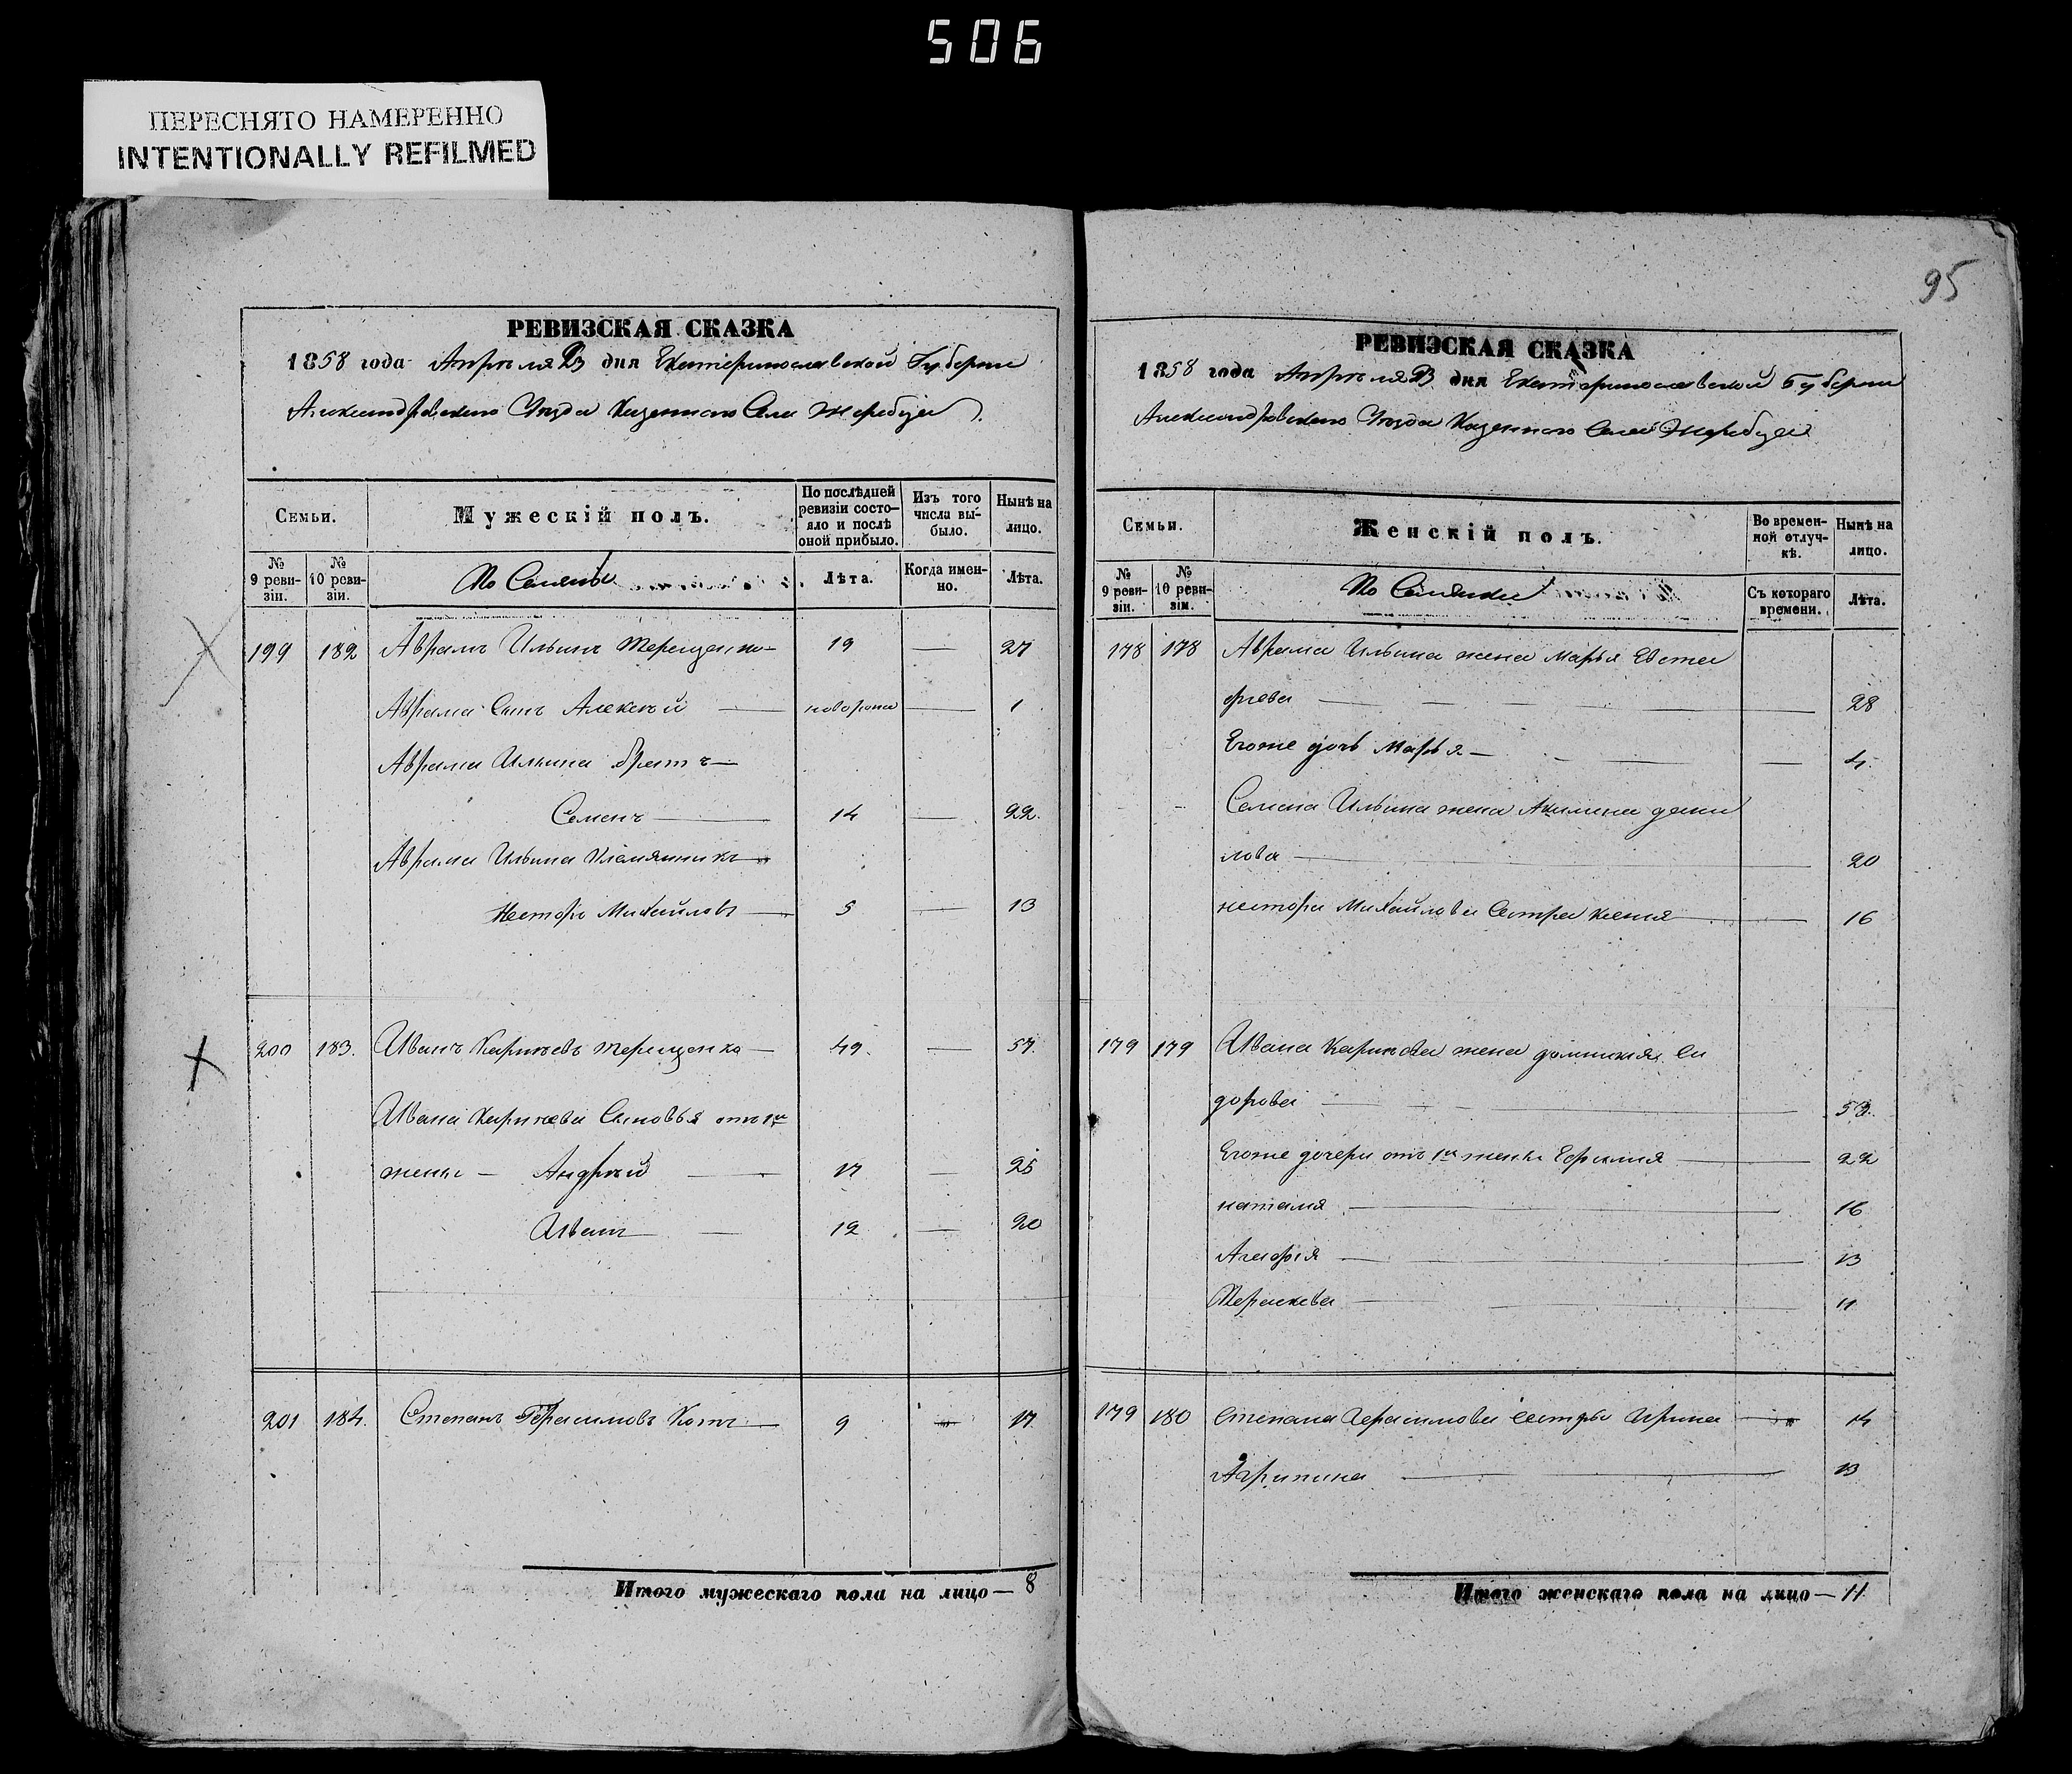 506
ПЕРЕСНЯТО НАМЕРЕННО
INTENTIONALLY REFILMED
РЕВИЗСКАЯ СКАЗКА
1858 года Апрѣля дня Екатеринославской Губерни
Александровскаго Уѣзда Казеннаго Села Жеребца
Семьи.
Мужескій полъ.
По послѣдней ревизіи состо-
яло и послѣ
оной прибыло.
Изъ того
числа вы-
было.
Нынѣ на
лицо.
№
9 реви-
зіи.
№
10 реви-
зіи.
Лѣта.
Когда имен-
но.
Лѣта.
199 182 Аврамъ Ильинъ Терещенко 19 — 27
Аврама Сынъ Алексѣй — новорож — 1
Аврама Ильина братъ —
Семенъ — 14 — 22.
Аврама Ильина Племянникъ —
Несторъ Михайловъ — 5 — 13
200 183. Иванъ Карпѣевъ Терещенко — 49. — 57.
Ивана Карпѣева Сыновья отъ 1й
жены — Андрѣй — 17 — 25
Иванъ — 12 — 20
201 184. Степанъ Герасимовъ Котъ — 9 — 17.
Итого мужескаго пола на лицо — 8
95
РЕВИЗСКАЯ СКАЗКА
1858 года Апрѣля дня Екатеринославской Губерни
Александровскаго Уѣзда Казеннаго Села Жеребца
Семьи.
Женскій полъ.
Во времен-
ной отлуч-
кѣ.
Нынѣ на
лицо.
№
9 реви-
зіи.
№
10 реви-
зіи.
Съ котораго
времени.
Лѣта.
178 178 Аврама Ильина жена Марья Евста
фіева — 28
Егоже дочь Марья — 4.
Семена Ильина жена Акилина дани
лова — 20
Нестора Михайлова Сестра Ксенія — 16
179 179 Ивана Карпѣева жена Домникія Си
дорова — 53.
Егоже дочери отъ 1й жены Ефимия — 22
Наталя — 16
Агафія — 13
Параскева — 11
179 180 Степана Герасимова сестры Ирина — 14
Агрипина — 13
Итого женскаго пола на лицо — 11